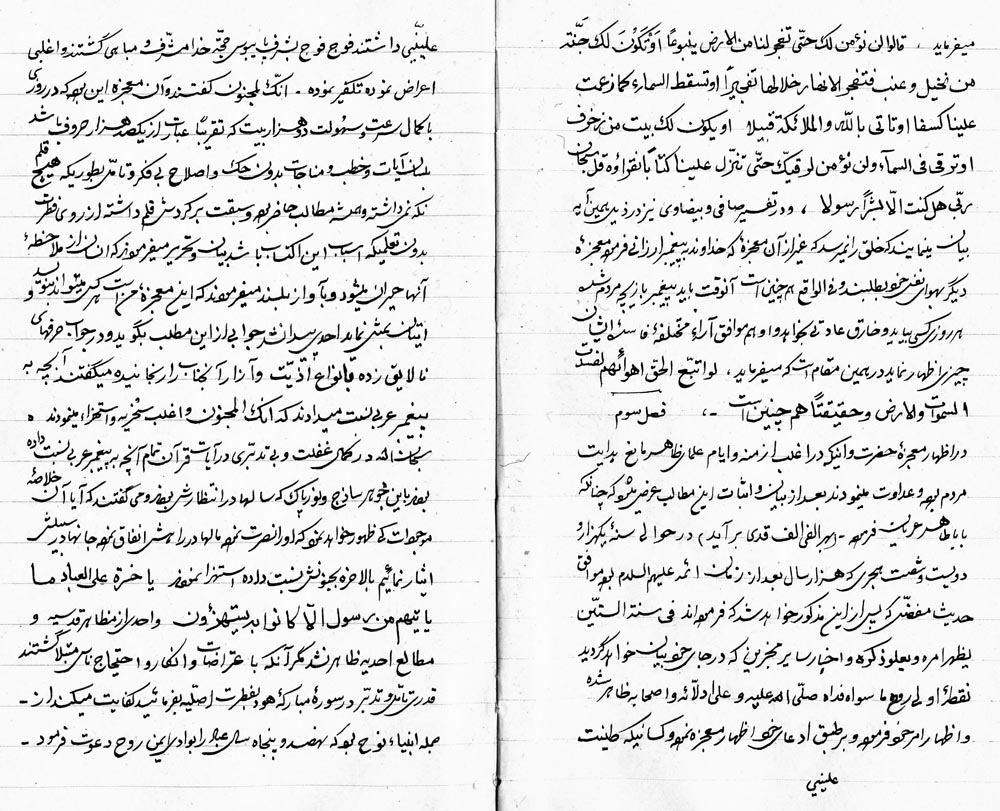 میفرماید ، قالوا لن نؤمن لک حتّی تفجر لنا من الارض ینبوعاً او تکون لک جنّة
من نخیل و عنب فتفجر الانهار خلالها تفجیراً او تسقط السماء کما زعمت
علینا کسفا او تأتی باللّه والملائکة قبیلا او یکون لک بیت من زخرف
او ترقی فی السمآء ولن نؤمن لرقیک حتّی تنزّل علینا کتاباً نقرؤه قل سبحان
ربّی هل کنت الّا بشراً رسولا ، و در تفسیر صافی و بیضاوی نیز در ذیل همین آیه
بیان مینمایند که خلق را نمیرسد که غیر از آن معجزهٔ که خداوند به پیغمبر ارزانی فرموده معجزهٔ
دیگر بهوای نفس خود بطلبند و فی الواقع هم چنین است آنوقت باید پیغمبر بازیچه مردم شده
هر روز کسی بیاید و خارق عادتی بخواهد و او هم موافق آراء مختلفهٔ فاسدهٔ ایشان
چیزی اظهار نماید در همین مقام است که میفرماید ، لو اتبع الحق اهوائهم لفسدت
السموات والارض و حقیقتاً هم چنین است -، فصل سوم
در اظهار معجزهٔ حضرت و اینکه در اغلب از منه و ایام علمای ظاهر مانع هدایت
مردم بوده و عداوت مینمودند بعد از بیان و اثبات این مطالب عرض میشود که چنانکه
باباطاهر عریان فرموده -(بهر الفی الف قدی بر آید) در حوالی سنهٔ یکهزار و
دویست و شصت هجری که هزار سال بعد از زمان ائمه علیهم السلام بود موافق
حدیث مفضّل که پس از این مذکور خواهد شد که فرموده‌اند فی سنة الستّین
یظهر امره و یعلو ذکره و اخبار سایر مخبرین که در جای خود بیان خواهد گردید
نقطهٔ اولی روح ما سواه فداه صلّی اللّه علیه و علی ادلّائه و اصحابه ظاهر شده
و اظهار امر خود فرموده و بر طبق ادعای خود اظهار معجزه نموده و کسانیکه طینت
علیینی
علیینی داشتند فوج فوج بشرفیابی سوی حجّة خدا مشرّف و مباهی گشتند و اغلبی
اعراض نموده تکفیر نموده - انّک لمجنون گفتند و آن معجزه این بود که در روزی
با کمال سرعت و سهولت دو هزار بیت که تقریباً عبارت از یکصد هزار حروف باشد
بلسان آیات و خطب و مناجات بدون حک و اصلاح بی فکر و تأمّل بطوریکه هیچ قلم
نگه نداشته و همیشه مطالب حاضر بود و سبقت بر گردش قلم داشته از روی فطرت
بدون تعلمیکه اسباب این اکتساب باشد بیان و تحریر میفرمودند که انسان از ملاحظهٔ
آنها حیران میشود و بآواز بلند میفرمودند که این معجزهٔ من است هر کس میتواند بگوید و
اتیان بمثل نماید احدی پیدا نشد جوابی از این مطلب بگوید و در جواب حرفهای
نالایق زده بانواع اذیّت و آزار آنجناب را رنجانیده میگفتند آنچه به
پیغمبر عربی نسبت میدادند که انک لمجنون و اغلب سخریه و استهزاء مینمودند ه
سبحان اللّه در کمال غفلت و بی تدبّری در آیات قرآن تمام آنچه به پیغمبر عربی نسبت داده
بودند باین جوهر ساذج و نور پاک که سالها در انتظارش بودند و می گفتند که آیا آن خلاصهٔ
موجودات کی ظهور خواهد نمود که او را نصرت نموده مالها در راهش انفاق نموده جانها در سبیلش
ایثار نمائیم بالاخره بجنونش نسبت داده استهزا نمودند یا حسرة علی العباد ما
یأتیهم من رسول الّا کانوا به یستهزؤن و احدی از مظاهر قدسیه و
مطالع احدیه ظاهر نشد مگر آنکه باعتراضات و انکار و احتجاج ناس مبتلا گشتند
قدری تأمل و تدبّر در سورهٔ مبارکهٔ هود بفطرت اصلیه بفرمائید کفایت میکند از -
جمله انبیاء نوح بود که نهصد و پنجاه سال عباد را بوادی ایمن روح دعوت فرمود -